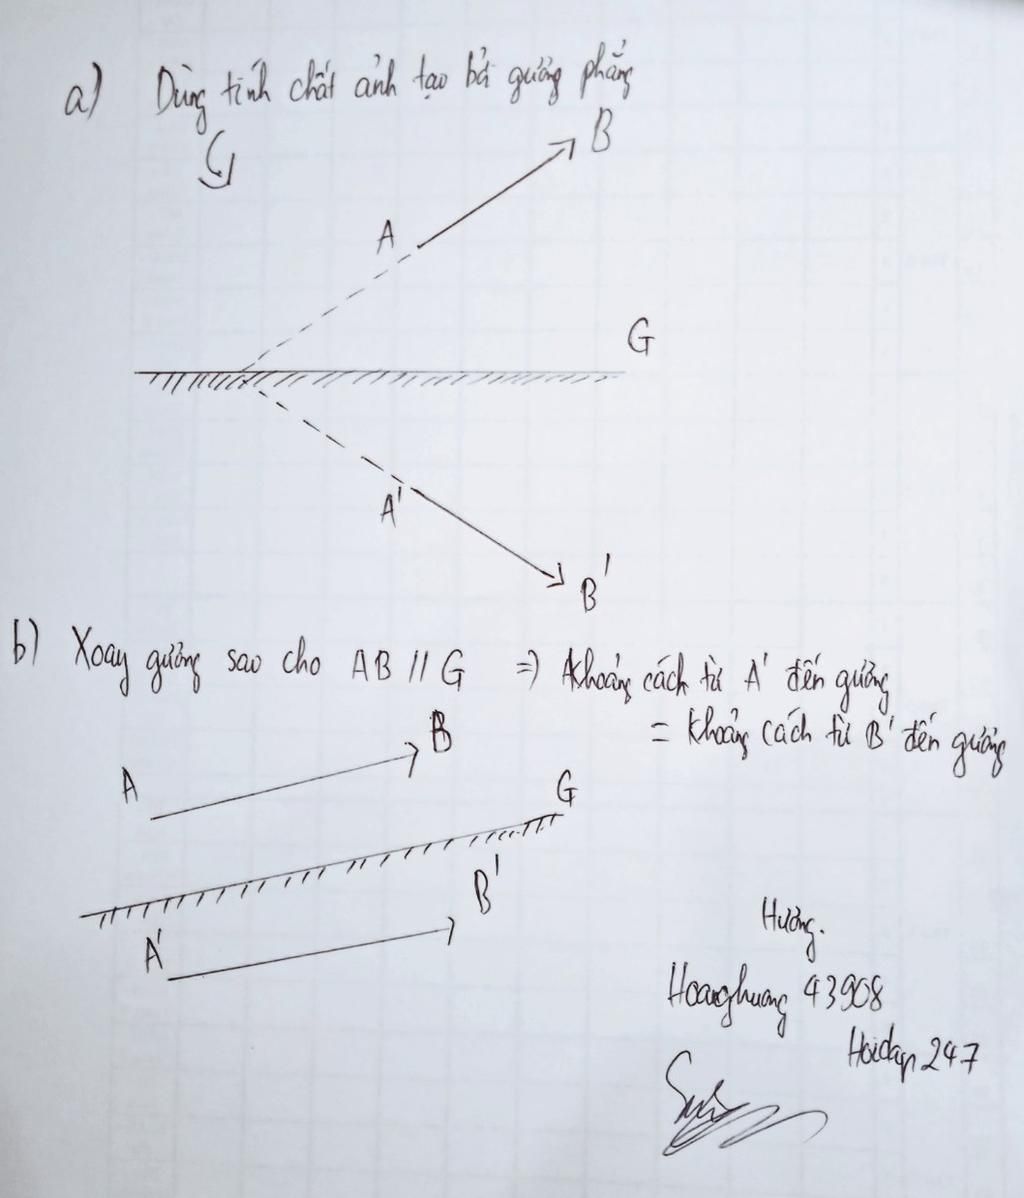 a) Dùng tính chất ảnh tạo bởi gương phẳng
B
A
G
A'
B'
b) Xoay gương sao cho AB // G => Khoảng cách từ A' đến gương
= khoảng cách từ B' đến gương
B
A
G
B'
A'
Hương.
Hoanghuong 43908
Hoidap 247